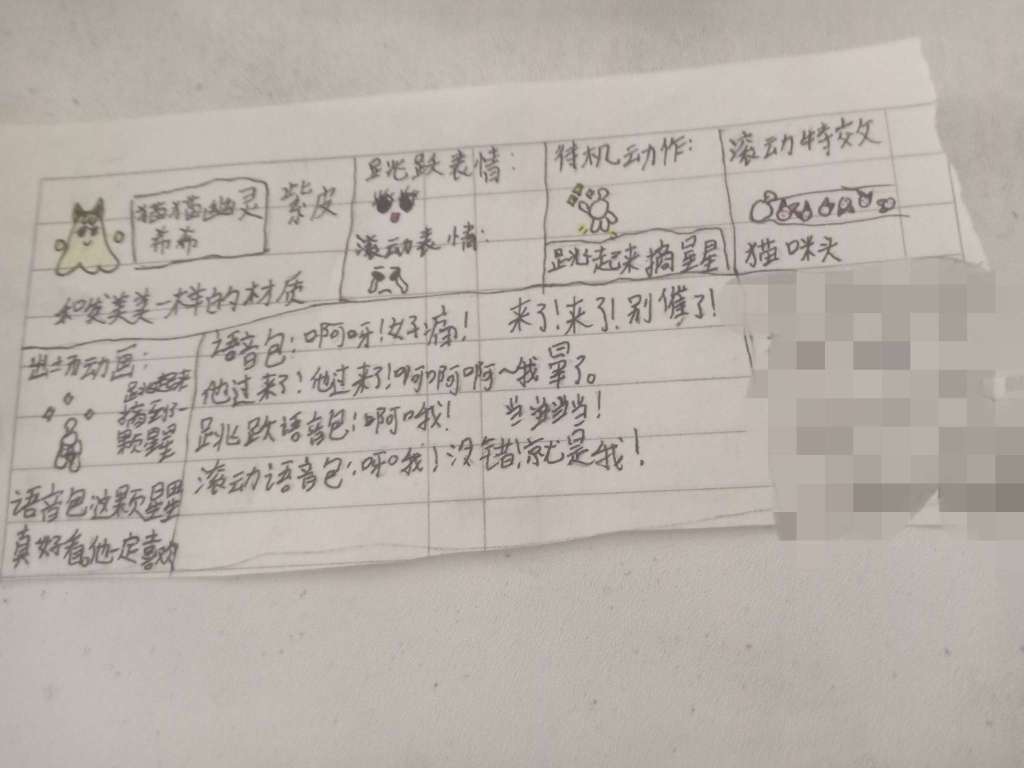 猫猫幽灵
希希
紫皮
和发美美一样的材质
跳跃表情：
滚动表情：
待机动作：
跳起来摘星星
滚动特效
猫咪头
出场动画：
跳起来
摘到了一
颗星星
语音包这颗星星
真好看他一定喜欢
语音包：啊呀！好痛！ 来了！来了！别催了！
他过来了！他过来了！啊啊啊～我晕了。
跳跃语音包：啊哦！ 当当当当！
滚动语音包：呀哦！没错！就是我！